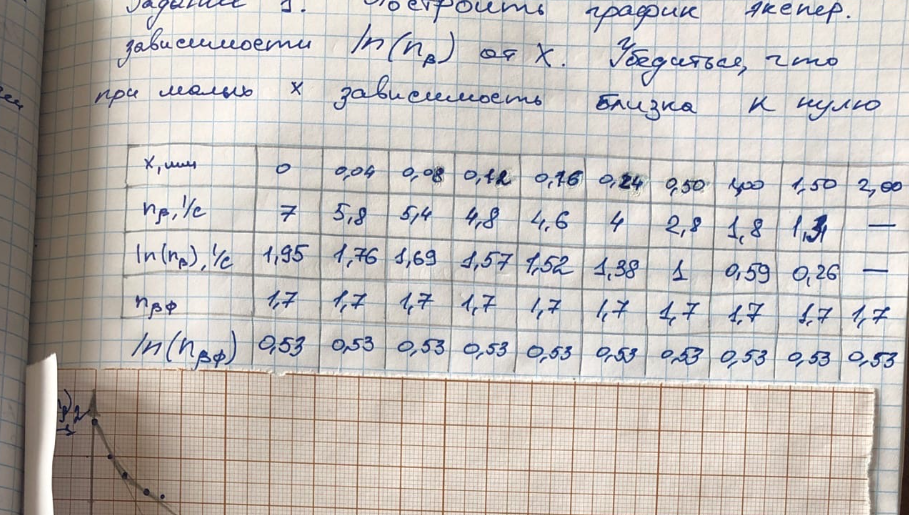 Задание 1. Построить график экспер.
зависимости ln(nβ) от x. Убедиться, что
при малых x зависимость близка к нулю
x, мм 0 0,04 0,08 0,12 0,16 0,24 0,50 1,00 1,50 2,00
nβ, 1/c 7 5,8 5,4 4,8 4,6 4 2,8 1,8 —
ln(nβ), 1/c 1,95 1,76 1,69 1,57 1,52 1,38 1 0,59 0,26 —
nβф 1,7 1,7 1,7 1,7 1,7 1,7 1,7 1,7 1,7 1,7
ln(nβф) 0,53 0,53 0,53 0,53 0,53 0,53 0,53 0,53 0,53 0,53
2